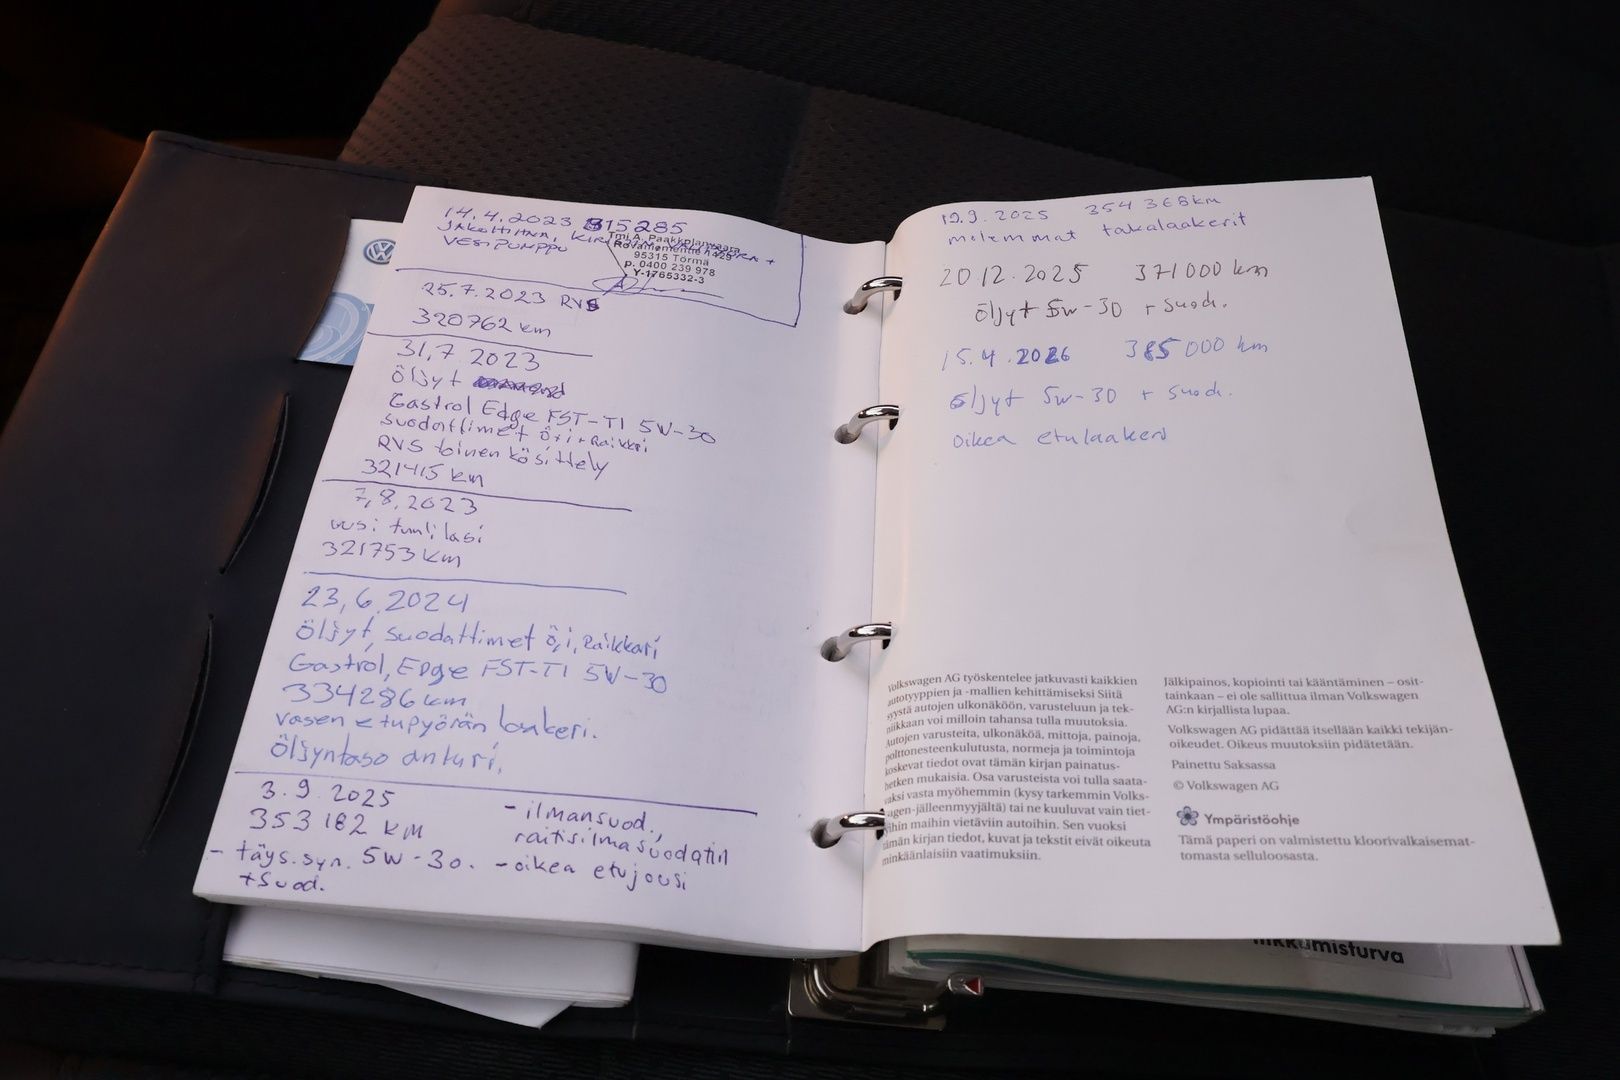 14.4.2023 315285
JAKOHIHNA,
VESIPUMPPU
Tmi A. Paakkolanvaara
Rovaniementie 1429
95315 Törmä
p. 0400 239 978
Y-1765332-3
25.7.2023 RVS
320762 km
31,7 2023
öljyt
Gastrol Edge FST-TI 5W-30
suodattimet ö,i+Raikkri
RVS toinen käsittely
321415 km
7,8,2023
uusi tuulilasi
321753 km
23,6,2024
öljyt, suodattimet ö,i, Raikkari
Gastrol, Edge FST-TI 5W-30
334286 km
vasen etupyörän laakeri.
öljyntaso anturi,
3.9.2025
353 182 KM
- täys.syn. 5W-30.
+suod.
- ilmansuod.,
raitisilmasuodatin
- oikea etujousi
19.9.2025 354 368 km
molemmat takalaakerit
20.12.2025 371000 km
öljyt 5w-30 + suod.
15.4.2026 385 000 km
öljyt 5w-30 + suod.
oikea etulaakeri
Volkswagen AG työskentelee jatkuvasti kaikkien
autotyyppien ja -mallien kehittämiseksi Siitä
syystä autojen ulkonäköön, varusteluun ja tek-
niikkaan voi milloin tahansa tulla muutoksia.
Autojen varusteita, ulkonäköä, mittoja, painoja,
polttonesteenkulutusta, normeja ja toimintoja
koskevat tiedot ovat tämän kirjan painatus-
hetken mukaisia. Osa varusteista voi tulla saata-
vaksi vasta myöhemmin (kysy tarkemmin Volks-
wagen-jälleenmyyjältä) tai ne kuuluvat vain tiet-
tyihin maihin vietäviin autoihin. Sen vuoksi
tämän kirjan tiedot, kuvat ja tekstit eivät oikeuta
minkäänlaisiin vaatimuksiin.
Jälkipainos, kopiointi tai kääntäminen – osit-
tainkaan – ei ole sallittua ilman Volkswagen
AG:n kirjallista lupaa.
Volkswagen AG pidättää itsellään kaikki tekijän-
oikeudet. Oikeus muutoksiin pidätetään.
Painettu Saksassa
© Volkswagen AG
Ympäristöohje
Tämä paperi on valmistettu kloorivalkaisemat-
tomasta selluloosasta.